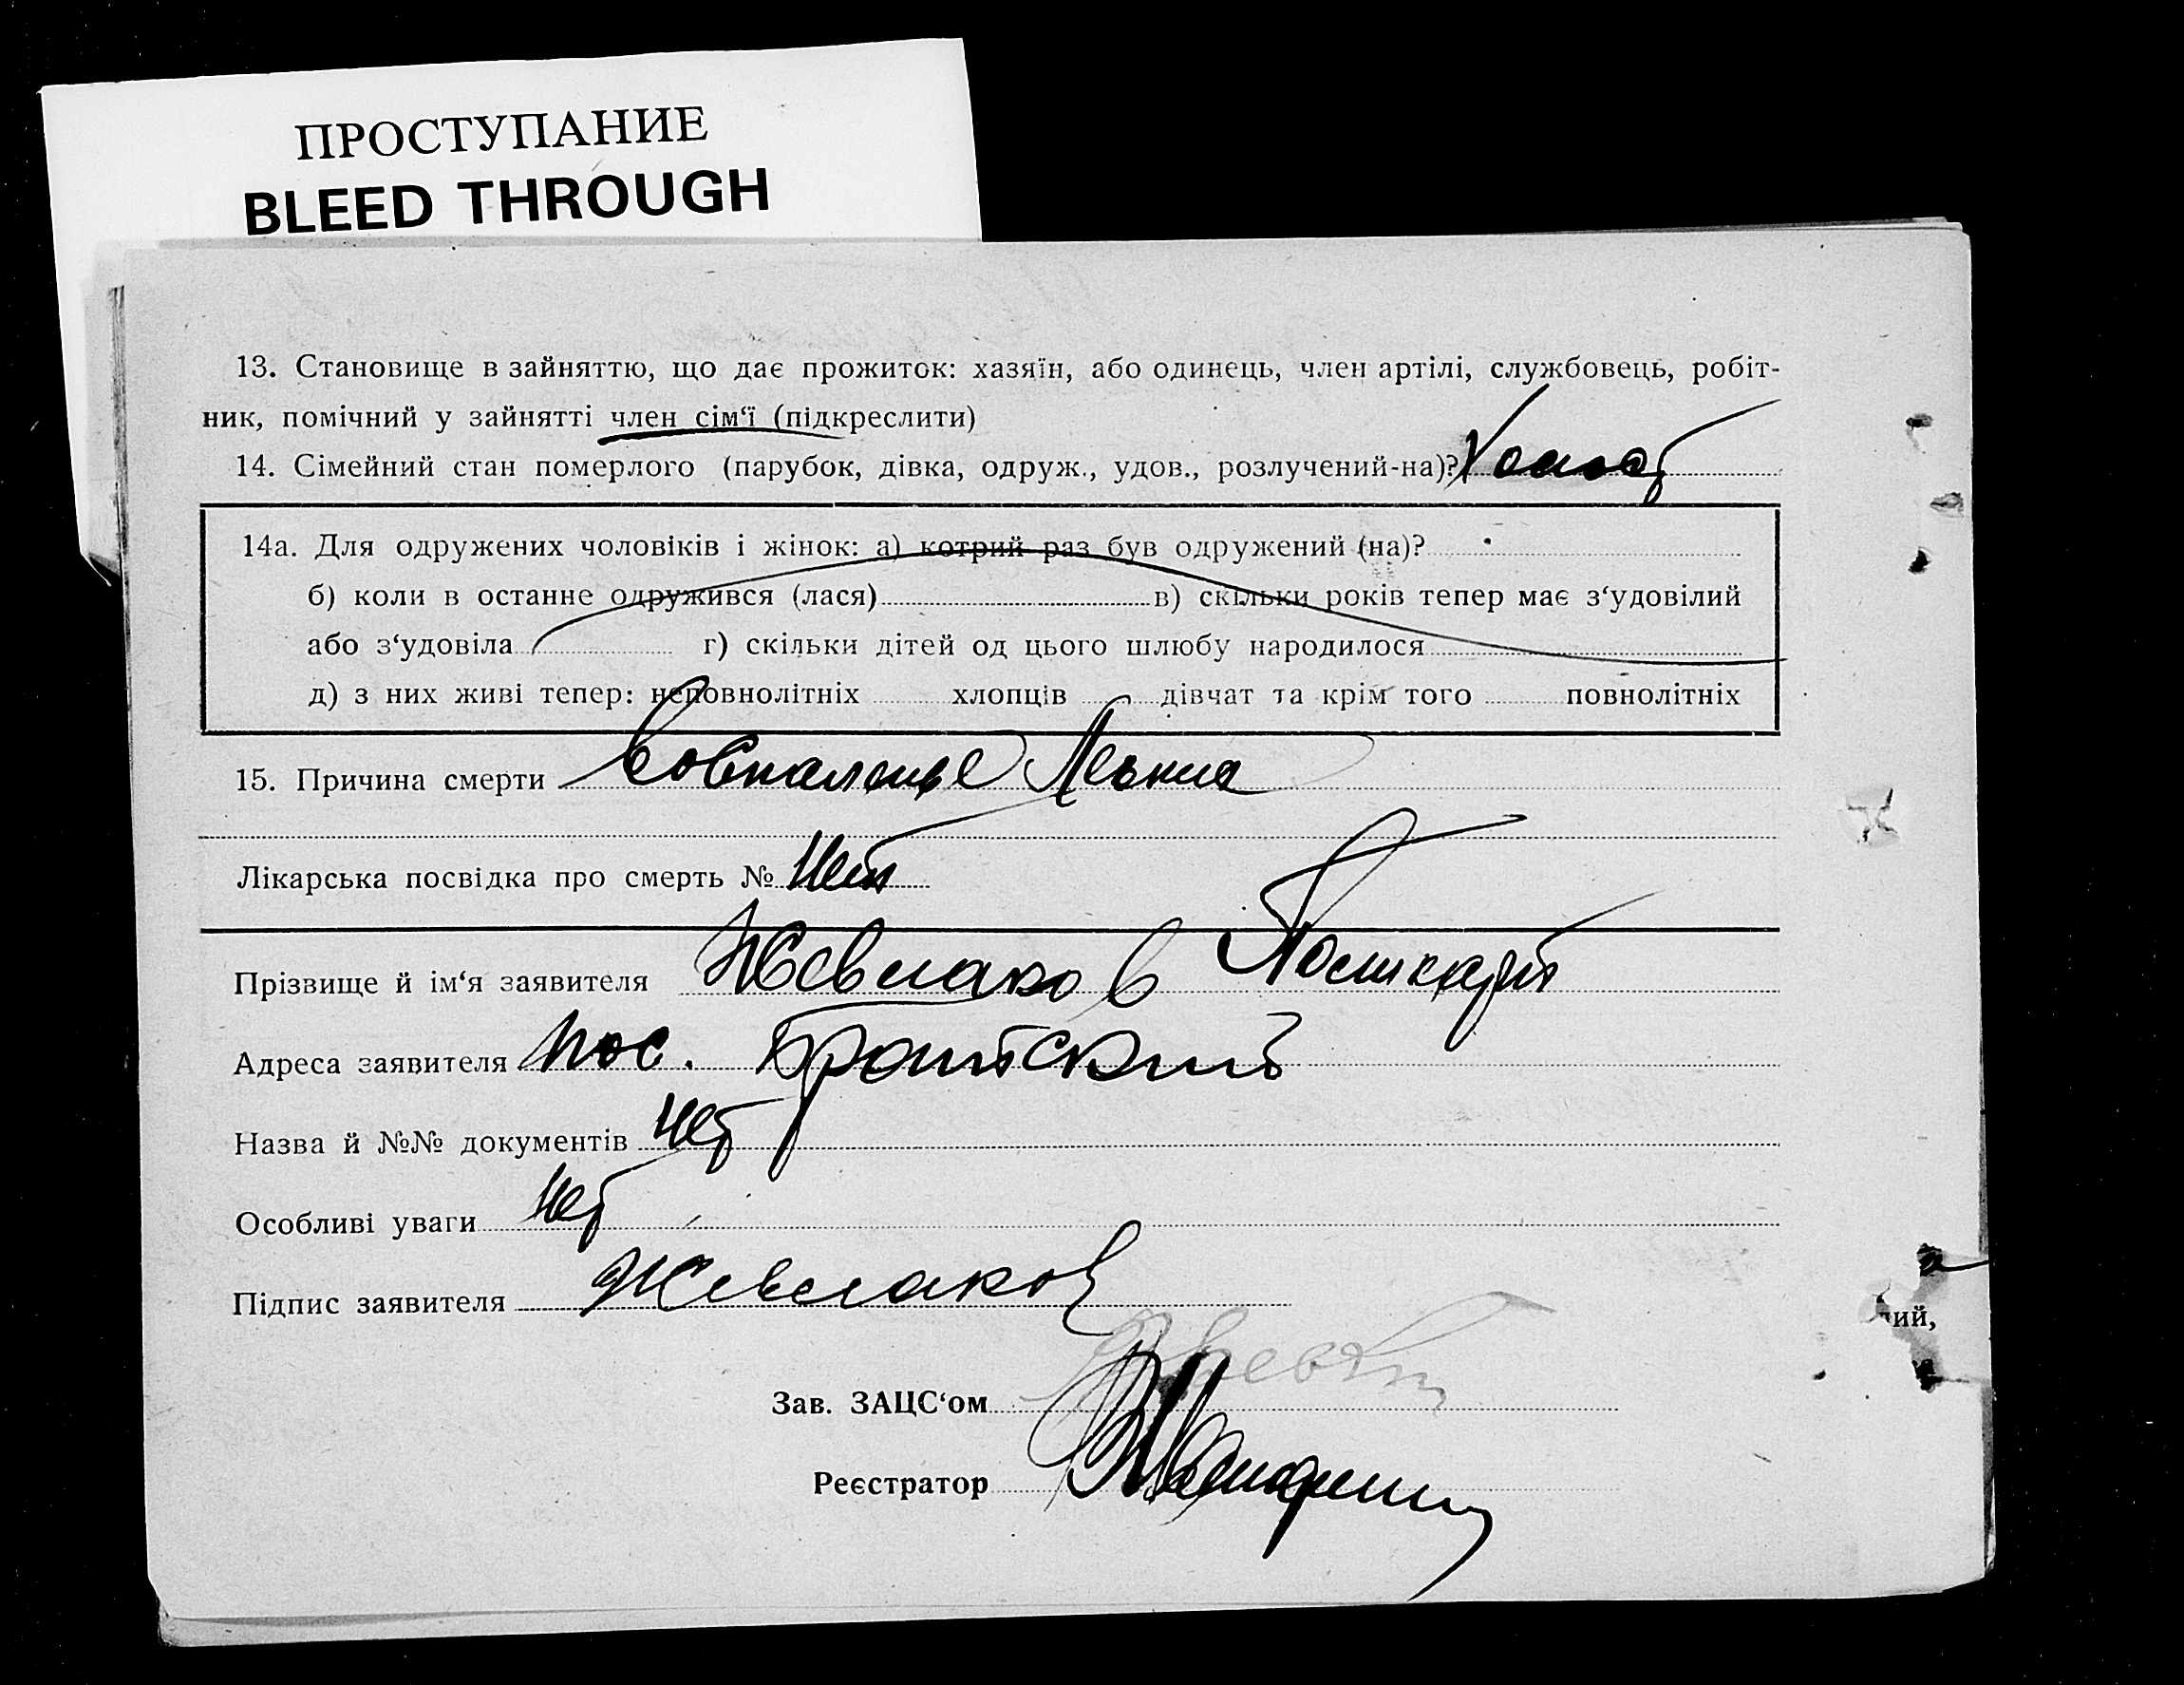 ПРОСТУПАНИЕ
BLEED THROUGH
13. Становище в зайняттю, що дає прожиток: хазяїн, або одинець, член артілі, службовець, робіт-
ник, помічний у зайнятті член сім‘ї (підкреслити)
14. Сімейний стан померлого (парубок, дівка, одруж., удов., розлучений-на)?
14а. Для одружених чоловіків і жінок: а) котрий раз був одружений (на)?
б) коли в останнє одружився (лася) в) скільки років тепер має з‘удовілий
або з‘удовіла г) скільки дітей од цього шлюбу народилося
д) з них живі тепер: неповнолітніх хлопців дівчат та крім того повнолітніх
15. Причина смерти
Лікарська посвідка про смерть № Нет
Прізвище й ім‘я заявителя
Адреса заявителя пос. Братский
Назва й №№ документів нет
Особливі уваги нет
Підпис заявителя
ний,
Зав. ЗАЦС‘ом
Реєстратор